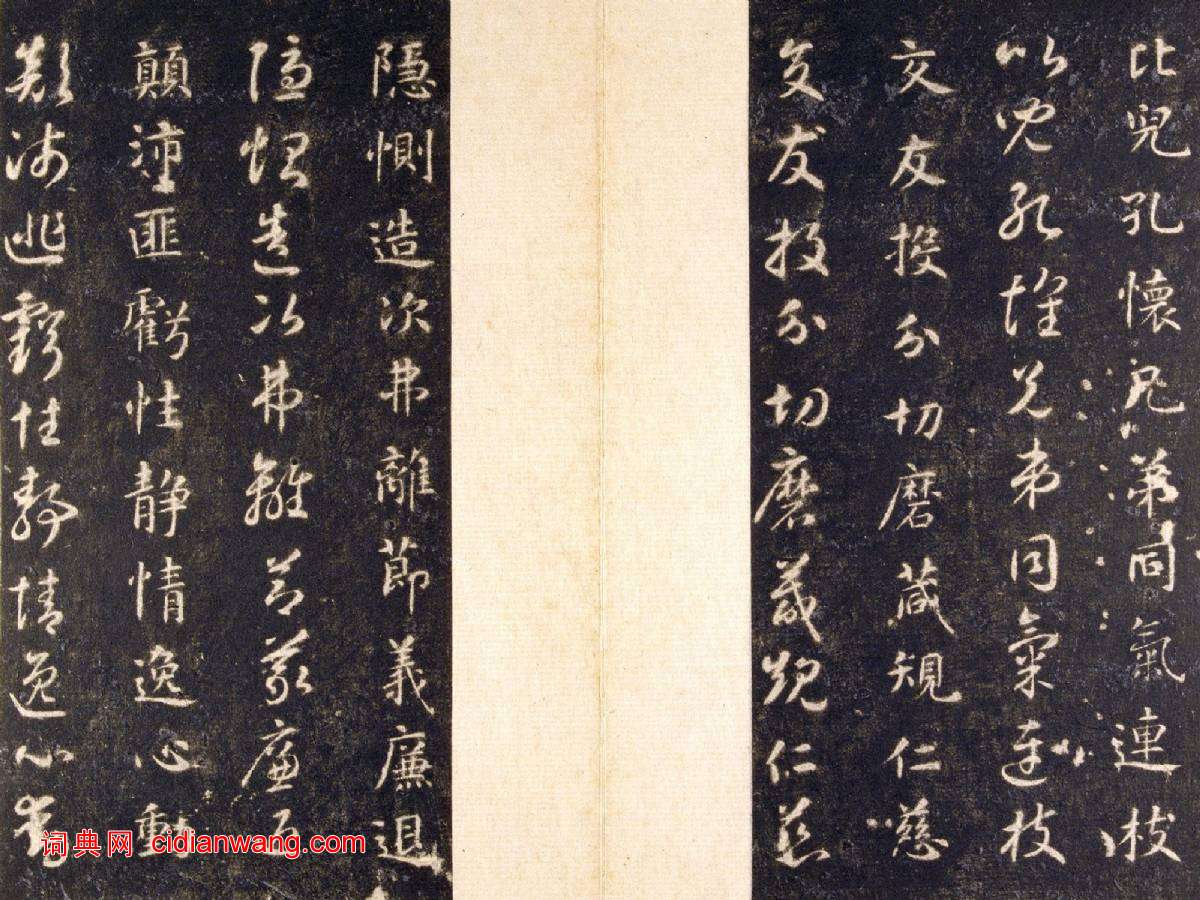 比兒孔懷兄弟同氣連枝
比兒孔懷兄弟同氣連枝
交友投分切磨葴規仁慈
交友投分切磨葴規仁慈
隱惻造次弗離節義廉退
隱惻造次弗離節義廉退
顛沛匪虧性静情逸心動
顛沛匪虧性静情逸心動
词典网 cidianwang.com